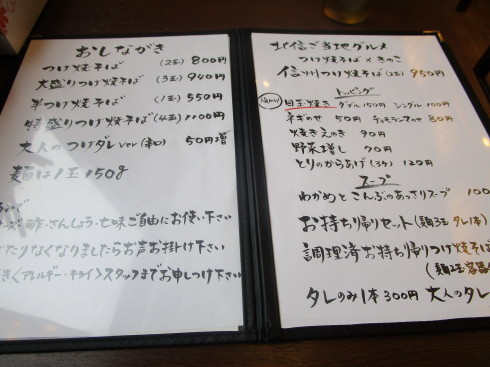 おしながき
つけ焼そば (2玉) 800円
大盛りつけ焼そば (3玉) 940円
半つけ焼そば (1玉) 550円
特盛りつけ焼そば (4玉) 1100円
大人のつけダレver(辛口) 50円増
麺は1玉150g
酢・さんしょう・七味ご自由にお使い下さい
たりなくなりましたらお声お掛け下さい
アレルギー・キライ〉スタッフまでお申しつけ下さい
北信ご当地グルメ
つけ焼そば×きのこ
信州つけ焼そば(2玉) 950円
トッピング
目玉焼き ダブル150円 シングル100円
ネギのせ 50円 のせ 80円
焼きえのき 90円
野菜増し 70円
とりのからあげ(3ケ) 120円
スープ
わかめとこんぶのあっさりスープ 100
お持ち帰りセット(麺3玉タレ1本)
調理済お持ち帰りつけ焼そば
(麺2玉容器
タレのみ1本300円 大人のタレ